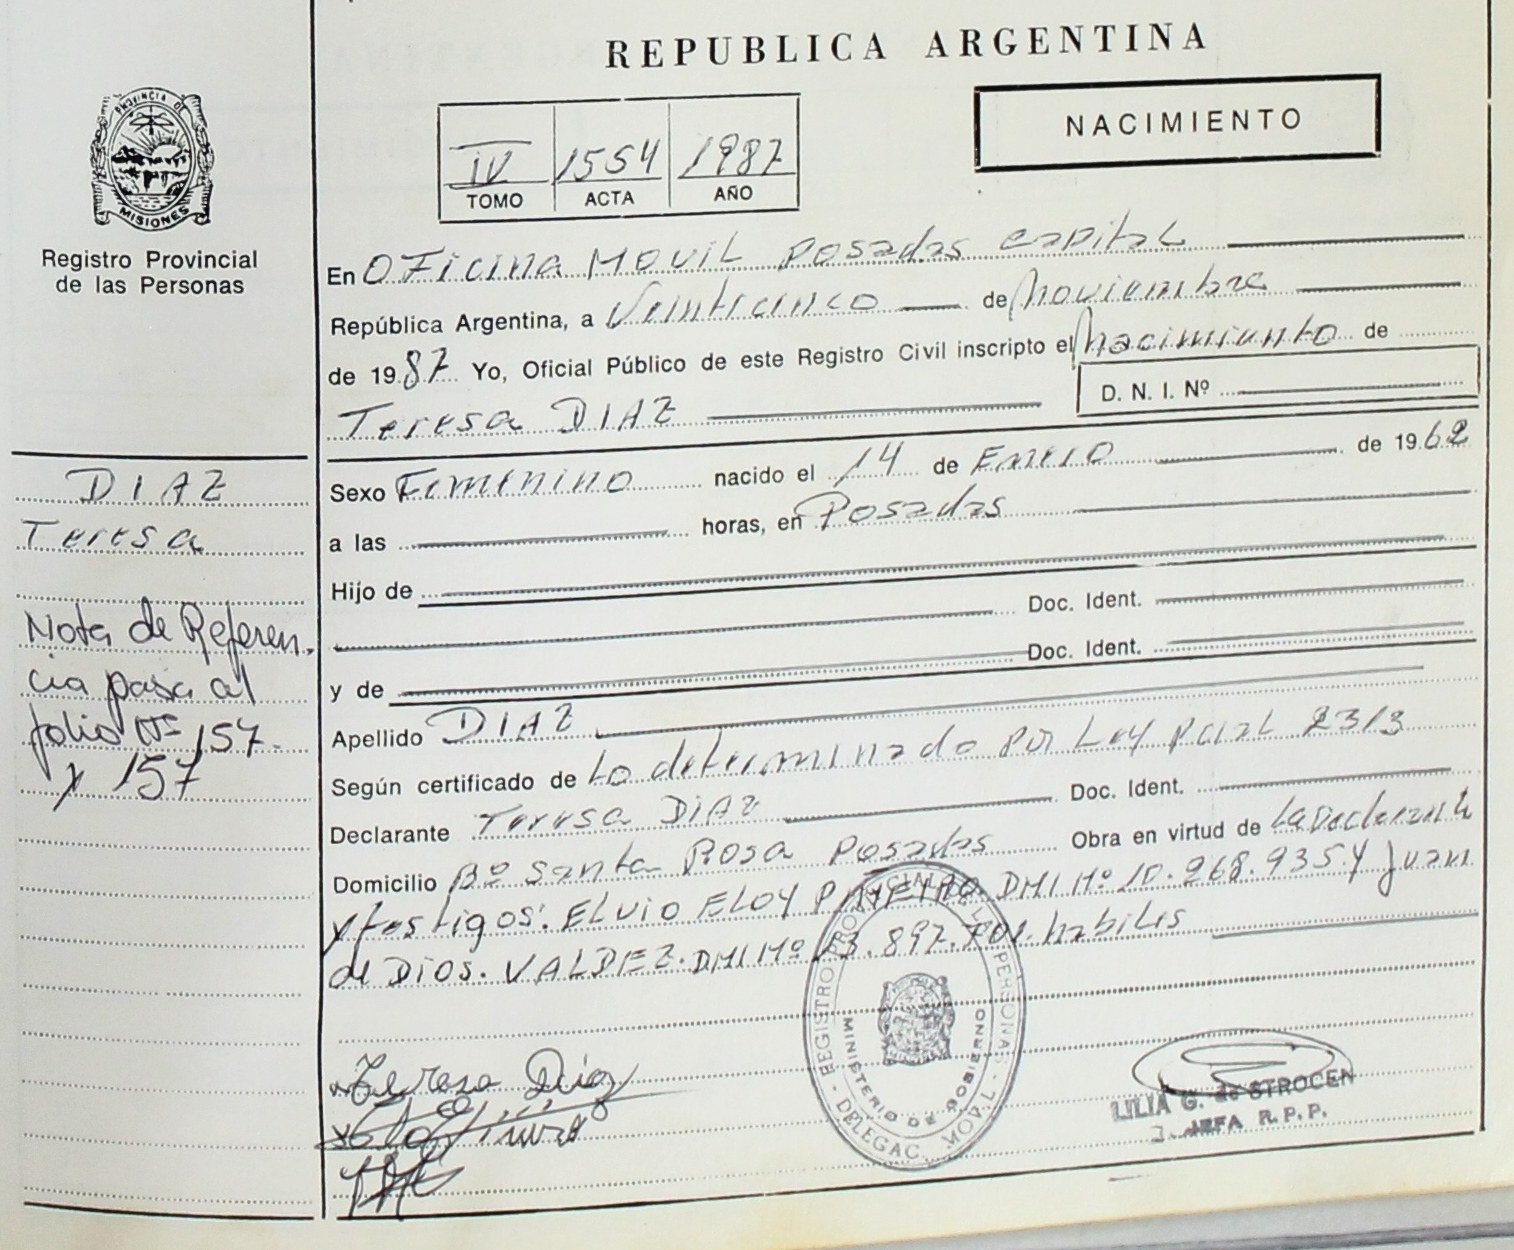 REPUBLICA ARGENTINA
NACIMIENTO
IV 1554 1987
TOMO ACTA AÑO
PROVINCIA DE MISIONES
Registro Provincial
de las Personas
En Oficina Movil Posadas Capital
República Argentina, a Veinticinco de Noviembre
de 1987 Yo, Oficial Público de este Registro Civil inscripto el Nacimiento de
D. N. I. Nº
Teresa DIAZ
Sexo Femenino nacido el 14 de Enero de 1962
a las horas, en Posadas
Hijo de
Doc. Ident.
Doc. Ident.
y de
Apellido DIAZ
Según certificado de Lo determinado por Ley pcial 2313
Declarante Teresa DIAZ Doc. Ident.
Domicilio Bº Santa Rosa Posadas Obra en virtud de La Declarante
y testigos: ELVIO ELOY DMI Nº 10.268.935 y Juan
de Dios. VALDEZ. DMI Nº habiles
DIAZ
Teresa
Nota de Referen.
cia pasa al
folio Nº 157.
y 157
Teresa Diaz
REGISTRO PROVINCIAL DE LAS PERSONAS - DELEGAC. MOVIL -
MINISTERIO DE GOBIERNO
LILIA G. de STROCEN
JEFA R.P.P.